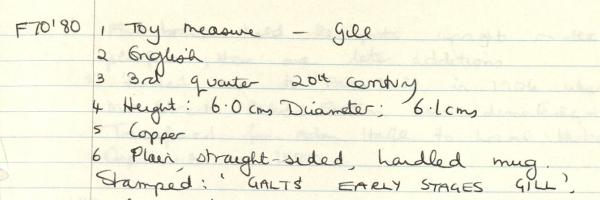 F70'80 1 Toy measure – Gill
2 English
3 3rd quarter 20th century
4 Height: 6.0 cms Diameter; 6.1cms
5 Copper
6 Plain, straight-sided, handled mug.
Stamped: 'GALTS EARLY STAGES GILL'.